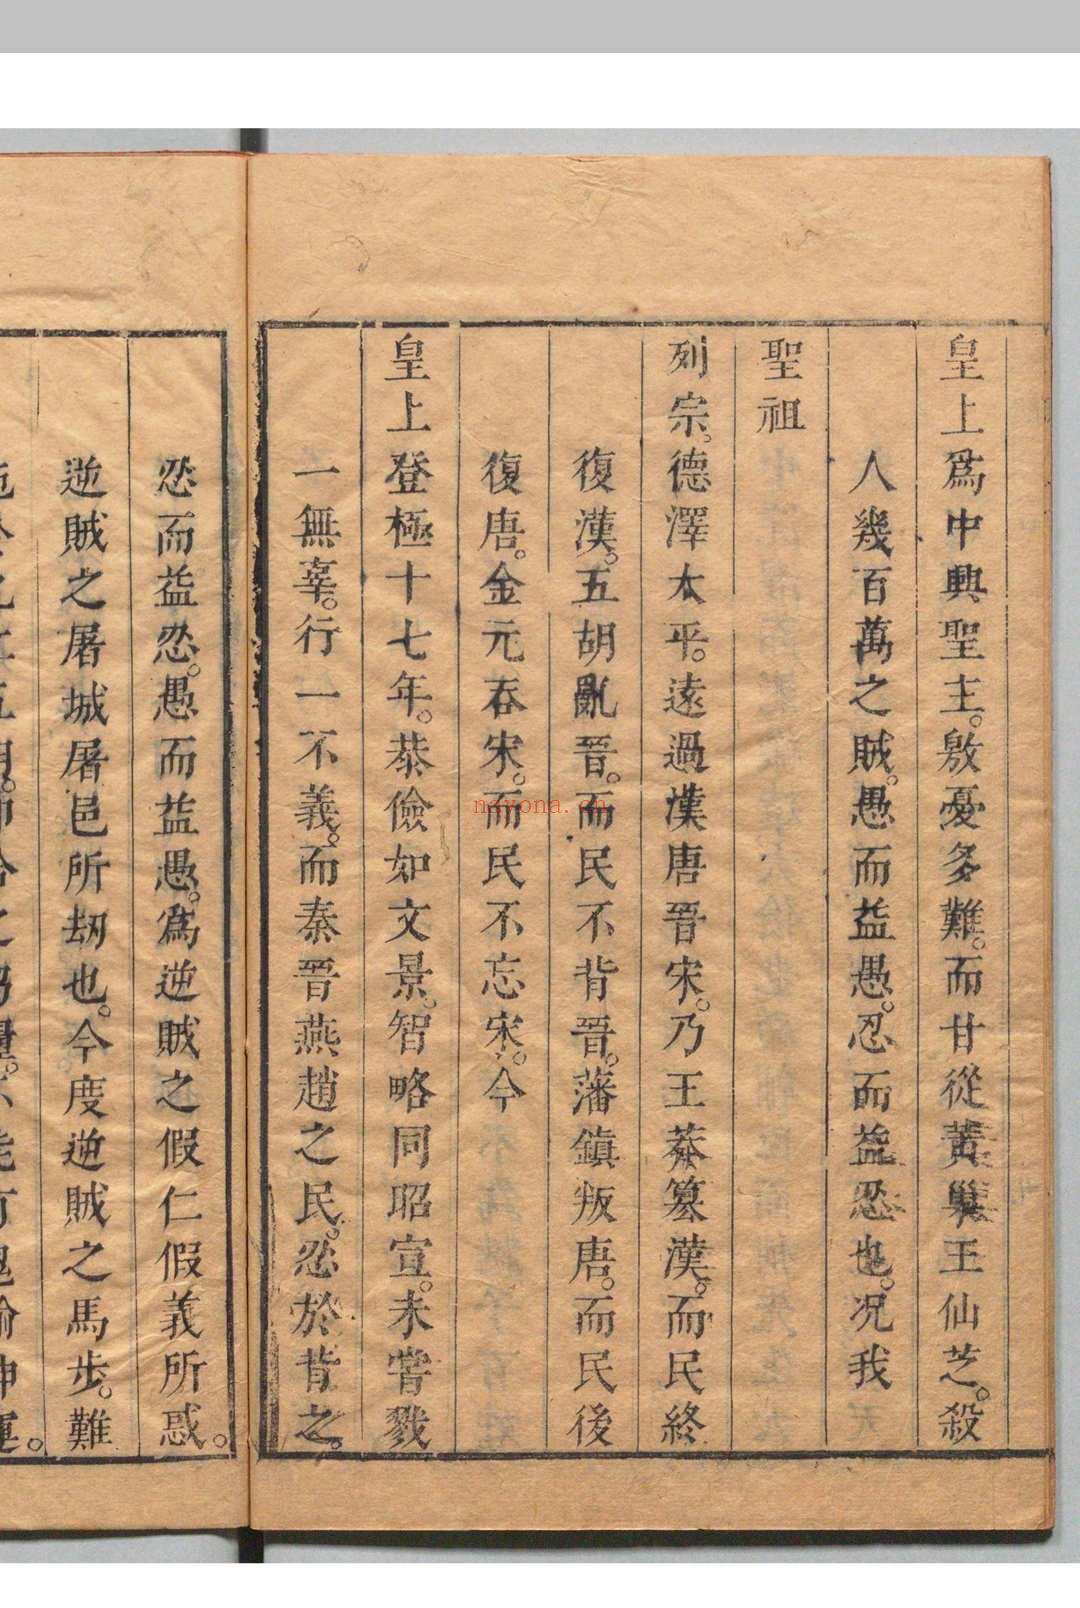 皇上爲中興聖主。敫憂多難。而甘從黃巢王仙芝。殺
人幾百萬之賊。愚而益愚。忍而益忍也。况我
聖祖
列宗。德澤太平。遠過漢唐晉宋。乃王莽篡漢。而民終
復漢。五胡亂晉。而民不背晉。藩鎮叛唐。而民後
復唐。金元吞宋。而民不忘宋。今
皇上登極十七年。恭儉如文景。智略同昭宣。未嘗戮
一無辜。行一不義。而秦晉燕趙之民。忍於背之。
忍而益忍。愚而益愚。爲逆賊之假仁假義所惑。
逆賊之屠城屠邑所刼也。今度逆賊之馬步。難
nayona.cn